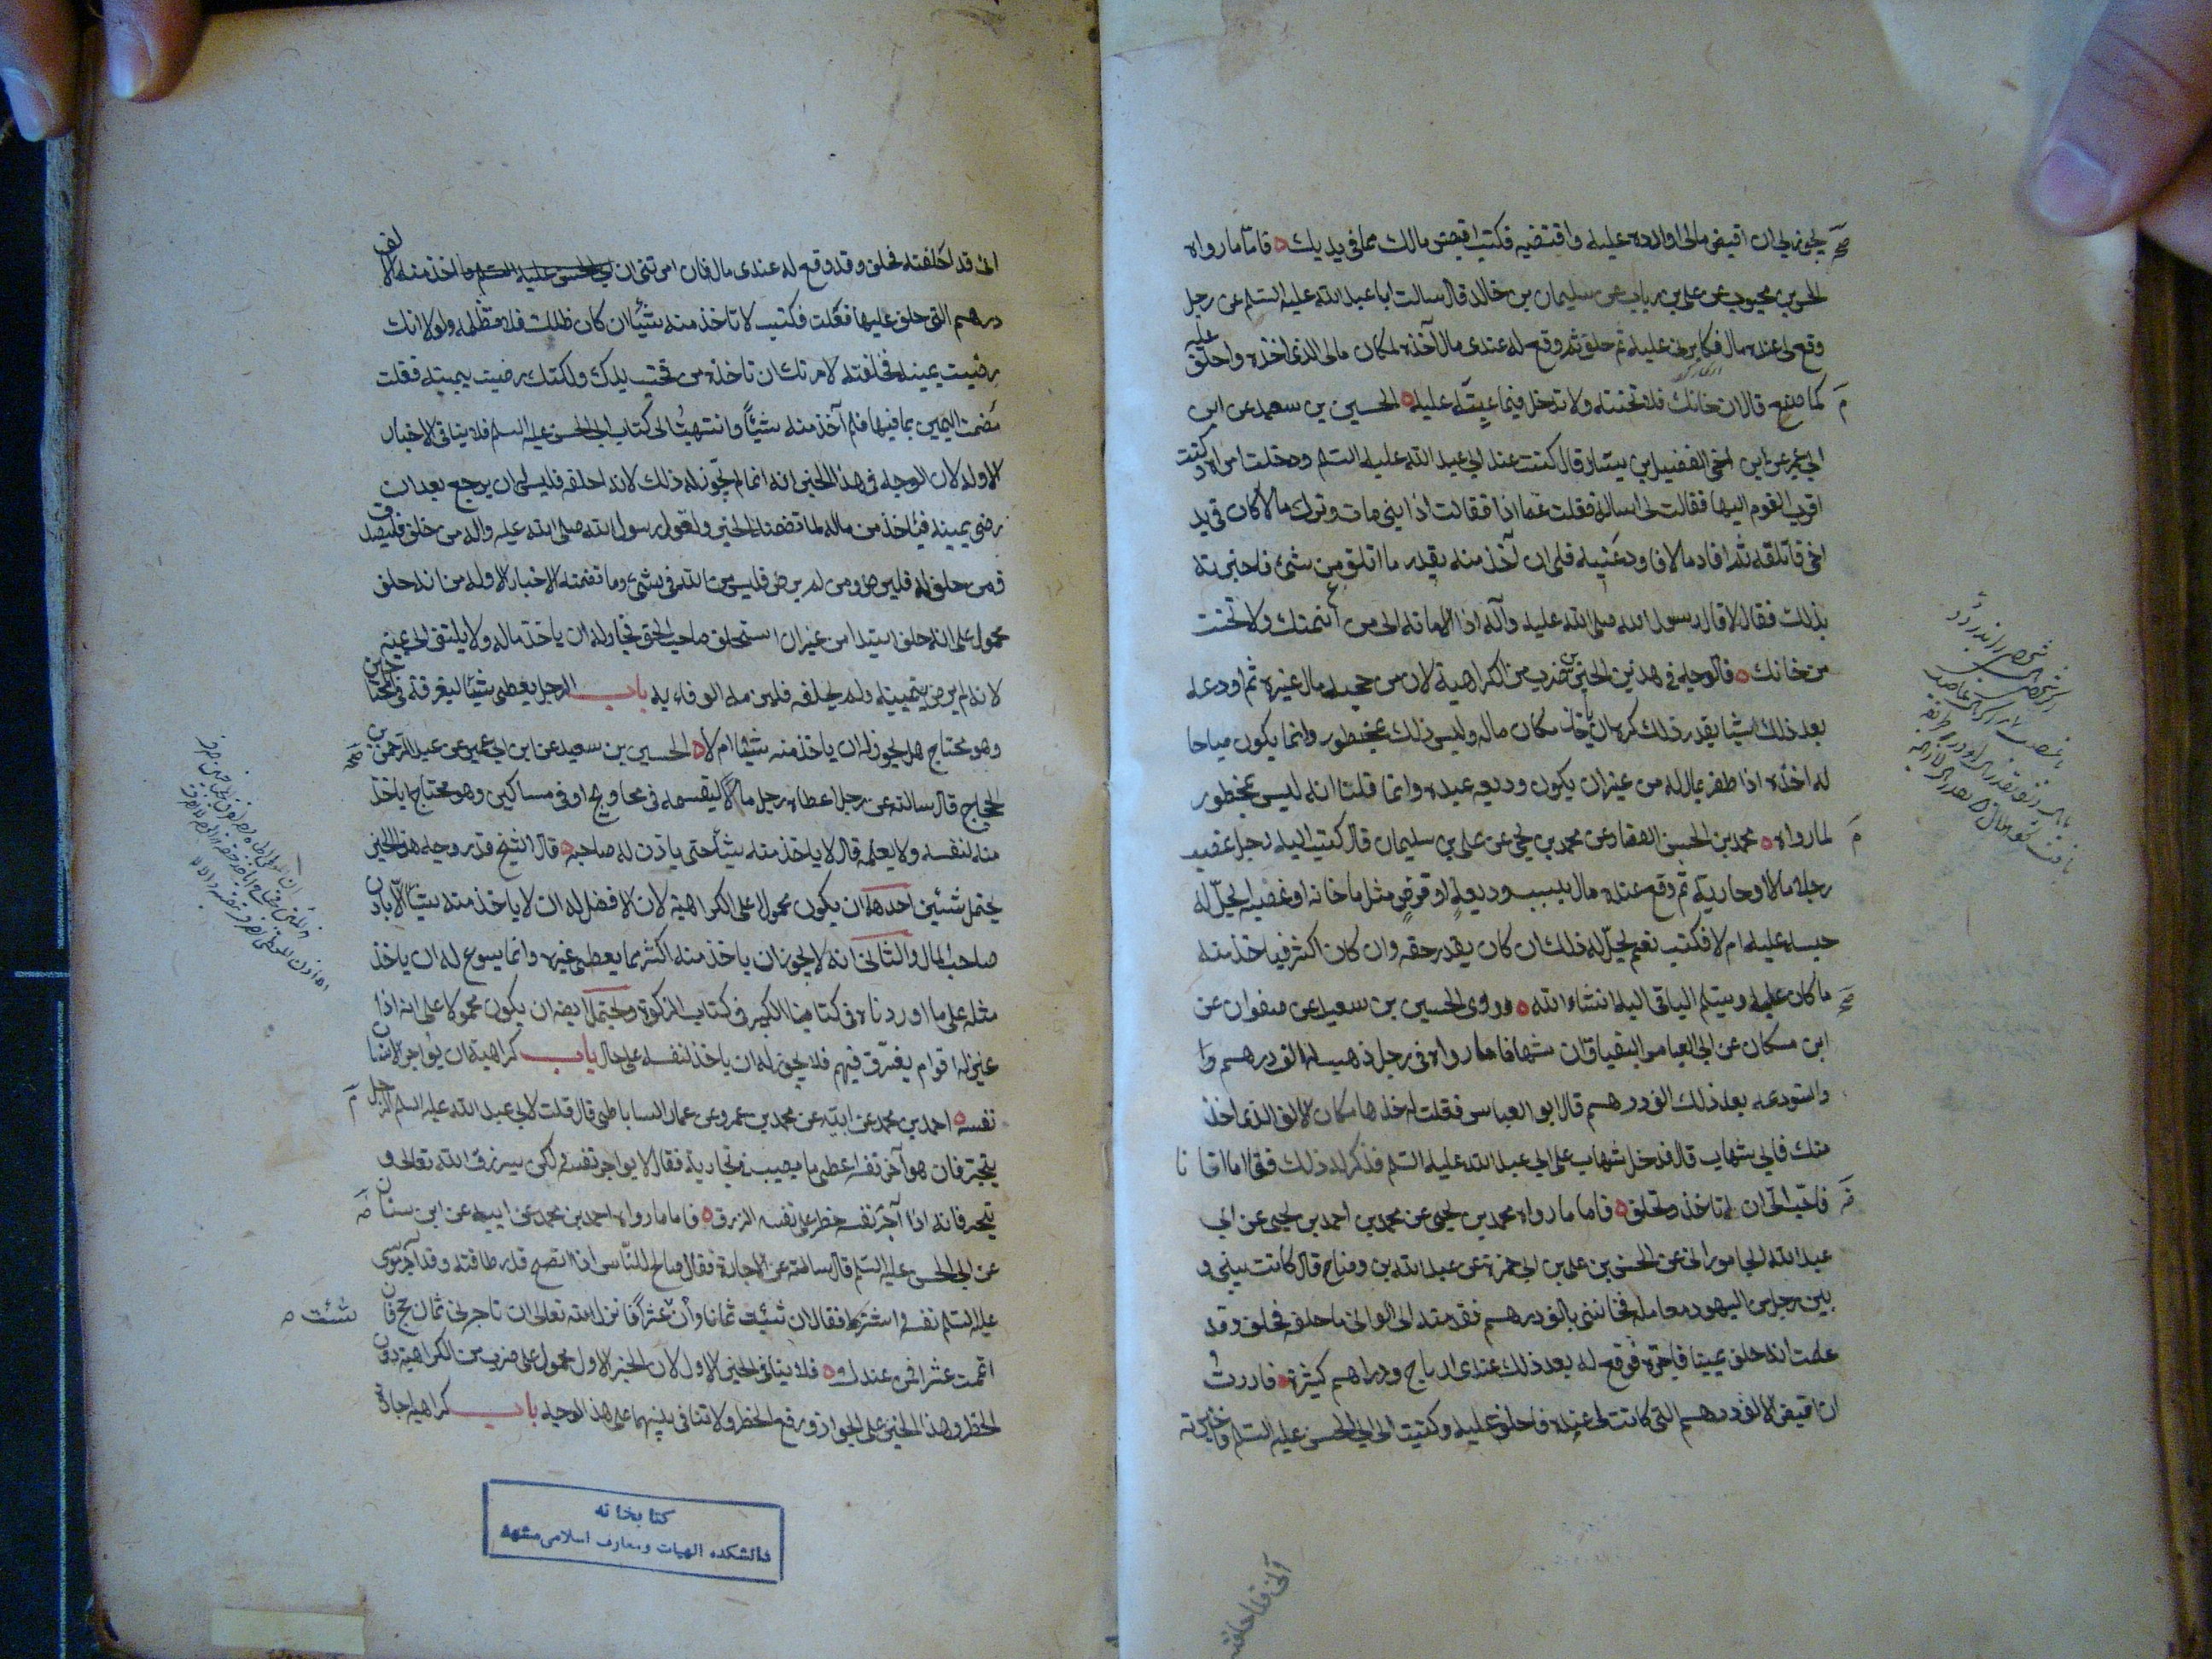 يجوز لي ان اقبض مالي او ارده عليه واقتضيه فكتب اقبض مالك مما في يديك فاما ما رواه
الحسن بن محبوب عن علي بن رياب عن سليمان بن خالد قال سالت ابا عبد الله عليه السلم عن رجل
وقع لي عنده مال فكابرني عليه ثم حلف ثم وقع له عندي مال آخذه لمكان مالي الذي اخذه واحلف عليه
كما صنع قال ان خانك فلا تخنه ولا تدخل فيما عبته عليه الحسين بن سعيد عن ابن
ابي عمير عن ابن اخي الفضيل بن يسار قال كنت عند ابي عبد الله عليه السلم ودخلت امراة وكنت
اقرب القوم اليها فقالت لي اساله فقلت عما ذا فقالت ان ابني مات وترك مالا كان في يد
اخي فاتلفه ثم افاد مالا فاودعنيه فلي ان آخذ منه بقدر ما اتلف من شئ فاخبرته
بذلك فقال لا قال رسول الله صلى الله عليه وآله اد الامانة الى من ائتمنك ولا تخن
من خانك فالوجه في هذين الخبرين ضرب من الكراهية لان من جحد مال غيره ثم اودعه
بعد ذلك شيئا بقدر ذلك كره ان ياخذ مكان ماله وليس ذلك بمحظور وانما يكون مباحا
له اخذه اذا ظفر بمال له من غير ان يكون وديعة عنده وانما قلنا انه ليس بمحظور
لما رواه محمد بن الحسن الصفار عن محمد بن يحيى عن علي بن سليمان قال كتب اليه رجل غصب
رجلا مالا او جارية ثم وقع عنده مال بسبب وديعة او قرض مثل ما خانه او غصبه ايحل له
حبسه عليه ام لا فكتب نعم يحل له ذلك ان كان بقدر حقه وان كان اكثر فياخذ منه
ما كان عليه ويسلم الباقي اليه انشاء الله وروى الحسين بن سعيد عن صفوان عن
ابن مسكان عن ابي العباس البقباق ان شهابا ما رواه في رجل ذهب له الف درهم وا
واستودعه بعد ذلك الف درهم قال ابو العباس فقلت له خذها مكان الالف الذي اخذ
منك فابي شهاب قال فدخل شهاب على ابي عبد الله عليه السلم فذكر له ذلك فق اما انا
فاحب الي ان تاخذ وتحلف فاما ما رواه محمد بن يحيى عن محمد بن احمد بن يحيى عن ابي
عبد الله الجاموراني عن الحسن بن علي بن ابي حمزة عن عبد الله بن وضاح قال كانت بيني و
بين رجل من اليهود معاملة فخانني بالف درهم فقدمته الى الوالي فاحلفته فحلف وقد
علمت انه حلف يمينا فاجرة فوقع له بعد ذلك عندي ارباح ودراهم كثيرة فاردت
ان اقبض الالف درهم التي كانت لي عنده فاحلف عليه وكتبت الى ابي الحسن عليه السلم فاخبرته
اني قد احلفته فحلف وقد وقع له عندي مال فان امرتني ان اخذ منه الالف
درهم التي حلف عليها فعلت فكتب لا تاخذ منه شيئا ان كان ظلمك فلا تظلمه ولولا انك
رضيت بيمينه فحلفته لامرتك ان تاخذه من تحت يدك ولكنك رضيت بيمينه فقد
مضت اليمين بما فيها فلم آخذ منه شيئا وانتهيت الى كتاب ابي الحسن عليه السلم فلا ينافي الاخبار
الاولة لان الوجه في هذا الخبر انه انما لم يجوز له ذلك لانه احلفه فليس له ان يرجع بعد ان
رضي بيمينه فياخذ من ماله لما تضمنه الخبر ولقول رسول الله صلى الله عليه واله من حلف فليصدق
ومن حلف له فليرض ومن لم يرض فليس من الله في شئ وما تضمنه الاخبار الاولة من انه حلف
محمول على انه حلف ابتداء من غير ان استحلفه صاحب الحق فجاز له ان ياخذ ماله ولا يلتفت الى يمينه
لانه لم يرض بيمينه ولم يحلفه فلزمه الوفاء به باب الرجل يعطى شيئا ليفرقه في المحتاجين
وهو محتاج هل يجوز له ان ياخذ منه شيئا ام لا الحسين بن سعيد عن ابن ابي عمير عن عبد الرحمن بن
الحجاج قال سالته عن رجل اعطاه رجل مالا ليقسمه في محاويج او في مساكين وهو محتاج اياخذ
منه لنفسه ولا يعلمه قال لا ياخذ منه شيئا حتى ياذن له صاحبه قال الشيخ قدس روحه هذا الخبر
يحتمل شيئين احدهما ان يكون محمولا على الكراهية لان الافضل له ان لا ياخذ منه شيئا الا باذن
صاحب المال والثاني انه لا يجوز ان ياخذ منه اكثر مما يعطى غيره وانما يسوغ له ان ياخذ
مثله على ما اوردناه في كتابنا الكبير في كتاب الزكوة ويحتمل ايضا ان يكون محمولا على انه اذا
عين له اقوام يفرق فيهم فلا يجوز له ان ياخذ لنفسه على حال باب كراهية ان يؤاجر الانسان
نفسه احمد بن محمد عن ابيه عن محمد بن عمرو عن عمار الساباطي قال قلت لابي عبد الله عليه السلم الرجل
يتجر فان هو آجر نفسه اعطي ما يصيب في تجارته فقال لا يواجر نفسه لكن يسترزق الله تعالى و
يتجر فانه اذا آجر نفسه حظر على نفسه الرزق فاما ما رواه احمد بن محمد عن ابيه عن ابن سنان
عن ابي الحسن عليه السلم قال سالته عن الاجارة فقال صالح للناس اذا نصح قدر طاقته وقد آجر موسى
عليه السلم نفسه واشترط فقال ان شئت ثمانا وان عشرا فانزل الله تعالى ان تاجرني ثمان حجج فان
اتممت عشرا فمن عندك فلا ينافي الخبر الاول لان الخبر الاول محمول على ضرب من الكراهية دون
الحظر وهذا الخبر على الجواز ورفع الحظر ولا تنافي بينهما على هذا الوجه باب كراهية اجارة
كتابخانه
دانشكده الهيات ومعارف اسلامى مشهد